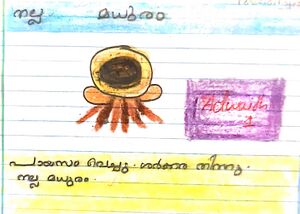 നല്ല മധുരം
1
പായസം വെച്ചു. ശർക്കര തിന്നു.
നല്ല മധുരം.